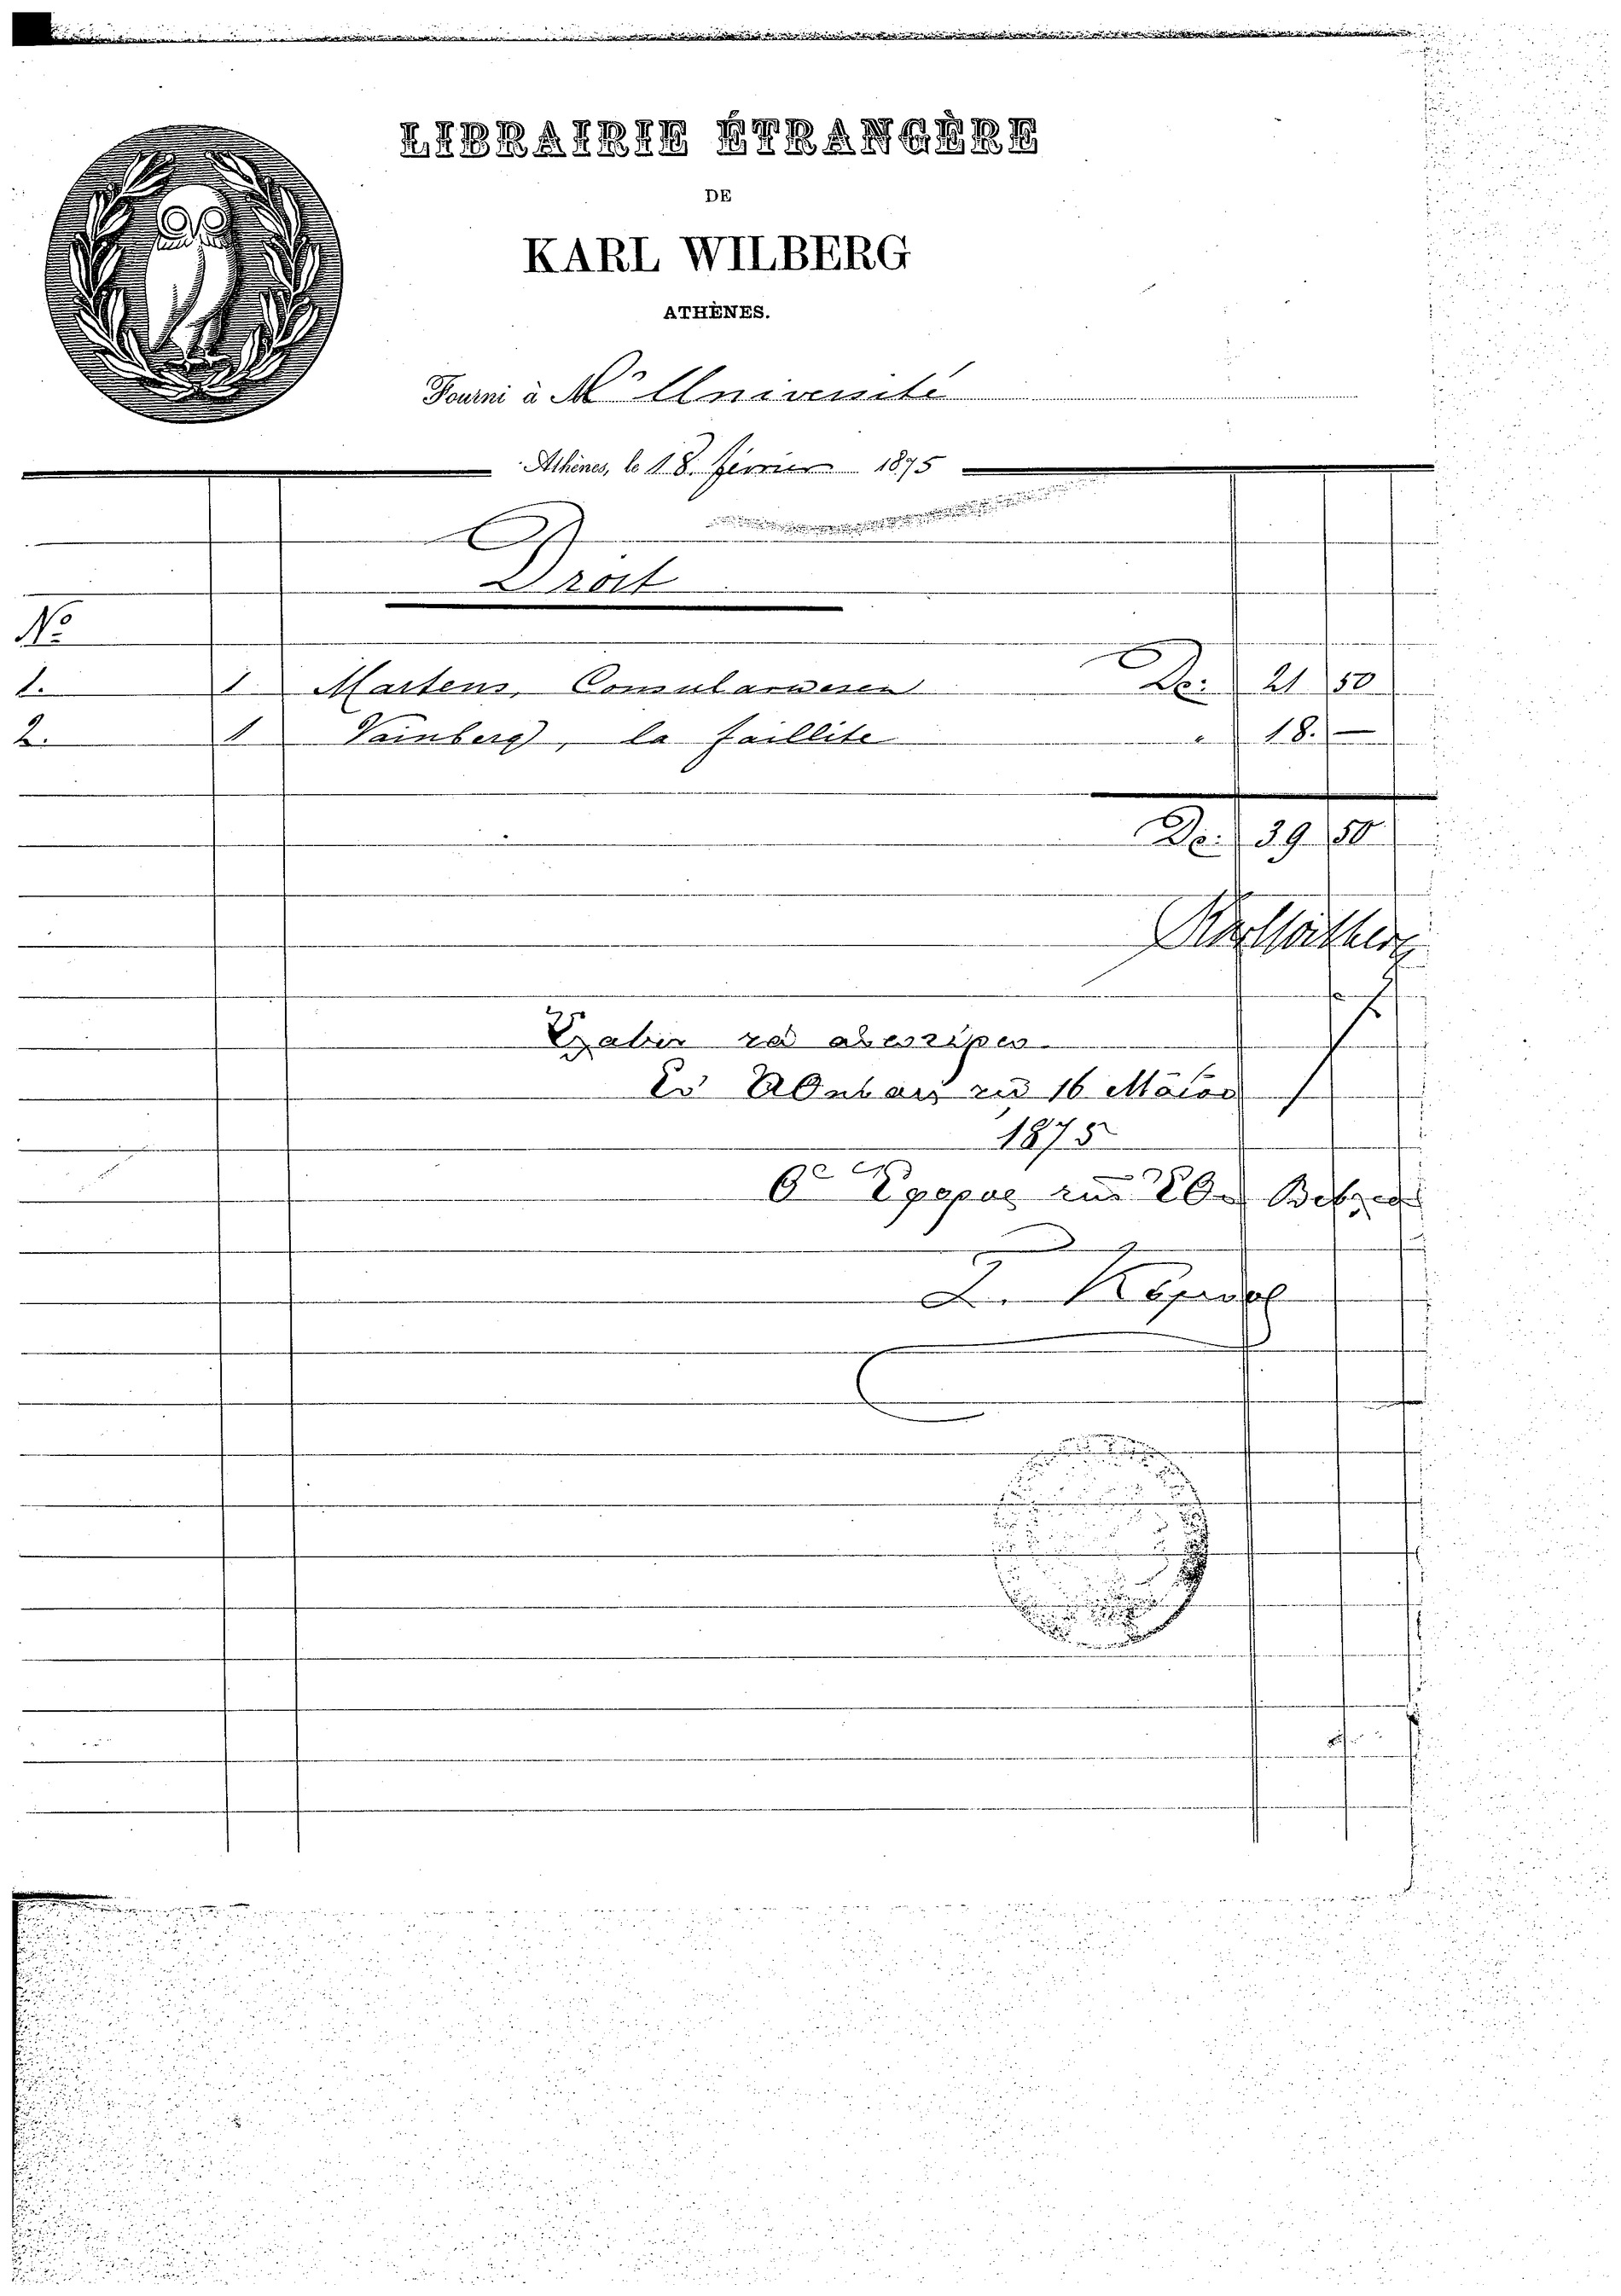 LIBRAIRIE ÉTRANGÈRE
DE
KARL WILBERG
ATHÈNES.
Fourni à Mr Université
Athènes, le 18. février 1875
Droit
No
1. 1 Martens, Consularwesen Dr: 21 50
2. 1 Vainberg, la faillite " 18. —
Dr: 39 50
Karl Wilberg
Ἔλαβον τὰ ἀνωτέρω
Ἐν Ἀθήναις τῇ 16 Μαΐου
1875
Ὁ Ἔφορος τῆς Ἐθν Βιβλιοθ